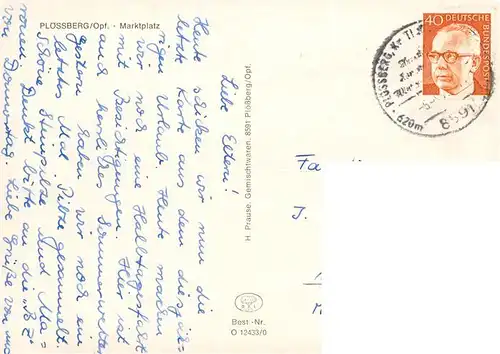 PLÖSSBERG/Opf. - Marktplatz
Liebe Eltern!
Heute schicken wir nun die
letzte Karte aus dem diesjäh-
rigen Urlaub. Heute machen
wir noch eine Halbtagsfahrt
mit Besichtigungen. Hier ist
auch herrliches Sommerwetter.
Gestern haben wir noch ein
letztes Mal Pilze gesammelt.
Schöne Steinpilze und Ma-
ronen. Denkt bitte an die "BZ"
von Donnerstag. Liebe Grüße von
H. Prause, Gemischtwaren, 8591 Plößberg/Opf.
Best.-Nr.
O 12433/0
40 DEUTSCHE
BUNDESPOST
PLÖSSBERG, Kr. Ti
620m
8591
Fa
J.